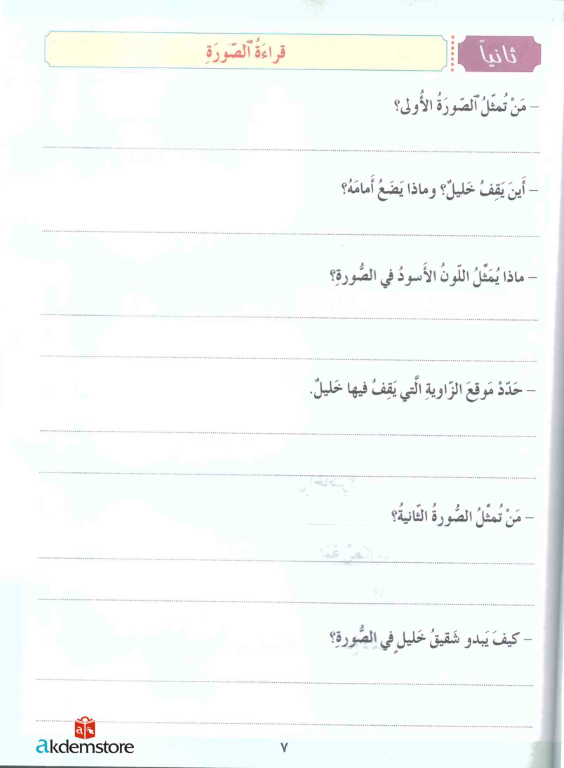 ثانياً
قراءَةُ ٱلصّورَةِ
– مَنْ تُمثّلُ ٱلصّورَةُ الأُولى؟
– أَينَ يَقِفُ خَليلٌ؟ وماذا يَضَعُ أَمامَهُ؟
– ماذا يُمَثِّلُ اللّونُ الأَسودُ في الصُّورةِ؟
– حَدّدْ مَوقِعَ الزّاويةِ الَّتي يَقِفُ فيها خَليلٌ.
– مَنْ تُمثِّلُ الصُّورةُ الثّانيةُ؟
– كيفَ يَبدو شَقيقُ خَليلٍ في الصُّورةِ؟
akdemstore
٧